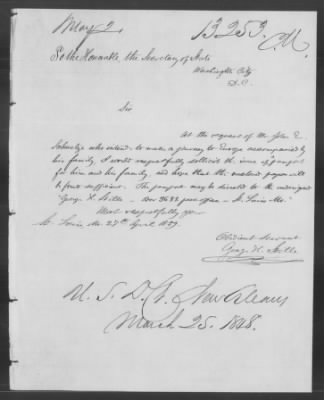 May 2
13253 M.
To the Honorable, the Secretary of State
Washington City
D.C.
Sir
At the request of Mr John E.
Schuetze who intends to make a journey to Europe accompanied by
his family, I would respectfully sollicit the issue of passport
for him and his family, and hope that the enclosed papers will
be found sufficient. The passport may be directed to the undersigned
"George H. – Box 3682 post office – St Louis Mo."
Most respectfully your
St. Louis Mo. 27th April 18
Obedient Servant
Georg. H.
U. S. D. C. New Orleans
March 25. 1848.